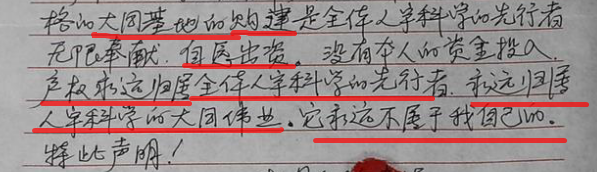 格的大同基地的购建是全体人宇科学的先行者
无限奉献、自愿出资。没有本人的资金投入，
产权永远归属全体人宇科学的先行者、永远归属
人宇科学的大同伟业。它永远不属于我自己的。
特此声明！